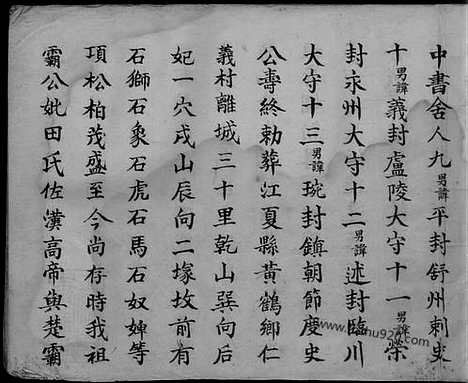 中書舍人九男諱平封舒州刺史
十男諱義封盧陵大守十一男諱榮
封永州大守十二男諱述封臨川
大守十三男諱琬封鎮朝節度史
公壽終勅葬江夏縣黃鶴鄉仁
義村離城三十里乾山巽向后
妃一穴戌山辰向二塚坟前有
石獅石象石虎石馬石奴婢等
項松柏茂盛至今尚存時我祖
霸公妣田氏佐漢高帝與楚霸